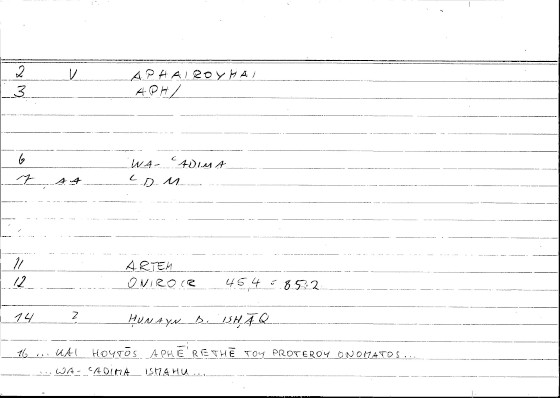 2 V APHAIROYMAI
3 APH/
6 WA-ʿADIMA
7 AA ʿDM
11 ARTEM
12 ONIROCR 45,4 = 85:2
14 2 ḤUNAYN B. ISḤĀQ
16 ... KAI HOYTŌS APHĒRETHĒ TOY PROTEROY ONOMATOS ...
... WA-ʿADIMA ISMAHU ...